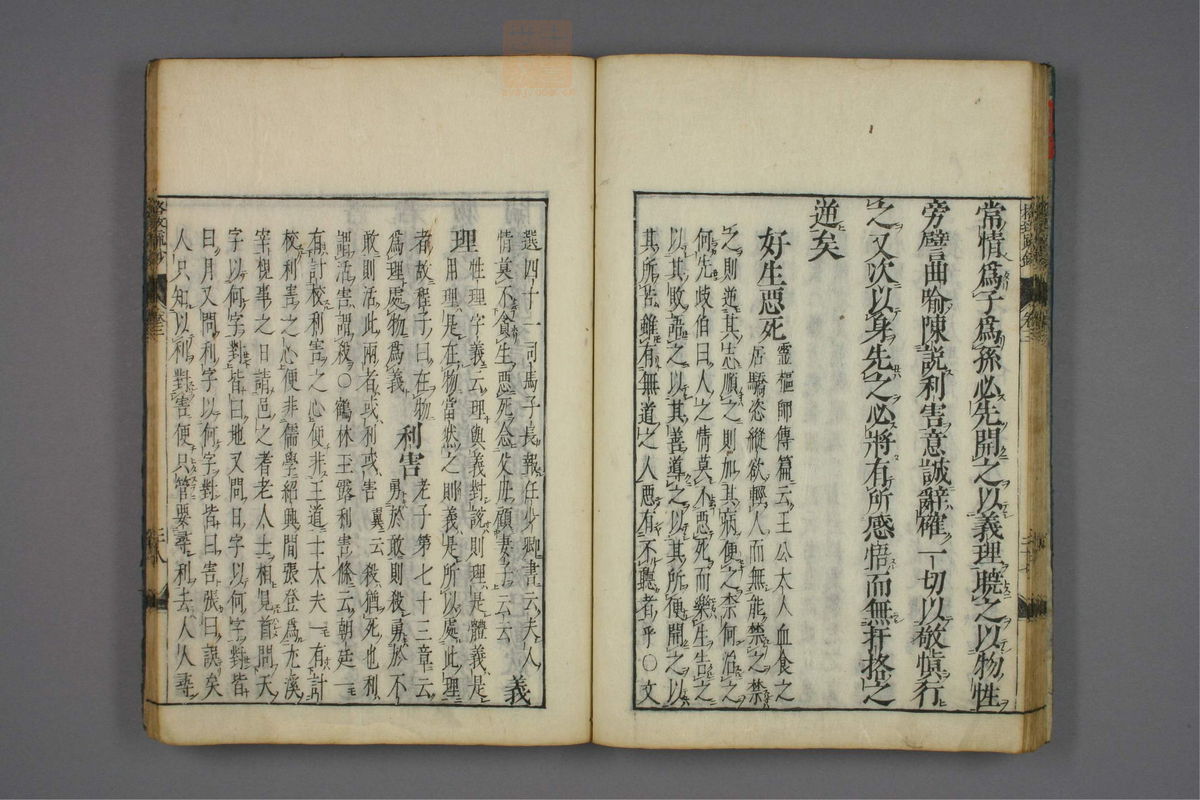 常情爲子爲孫必先開之以義理曉之以物性
旁譬曲喻陳說利害意誠辭確一切以敬愼行
之又次以身先之必將有所感悟而無扞格之
逆矣
好生惡死 靈樞師傳篇云王公大人血食之
居驕恣縱欲輕人而無能禁之禁
之則逆其志順之則加其病便之柰何治之
何先歧伯曰人之情莫不惡死而樂生告之
以其敗語之以其善導之以其所便開之以
其所苦雖有無道之人惡有不聽者乎○文
選四十一司馬子長報任少卿書云夫人
情莫不貪生惡死念父母顧妻子云云 義
理 性理字義云理與義對說則理是體義是
用理是在物當然之則義是所以處此理
者故程子曰在物
爲理處物爲義 利害 老子第七十三章云
勇於敢則殺勇於不
敢則活此兩者或利或害 翼云殺猶死也利
謂活害謂殺○鶴林玉露利害條云朝廷一
有計校利害之心便非王道士大夫一有計
校利害之心便非儒學紹興間張登爲尤溪
宰視事之日請邑之耆老人士相見首問天
字以何字對皆曰地又問日字以何字對皆
曰月又問利字以何字對皆曰害張曰誤矣
人只知以利對害便只管要尋利去人人尋